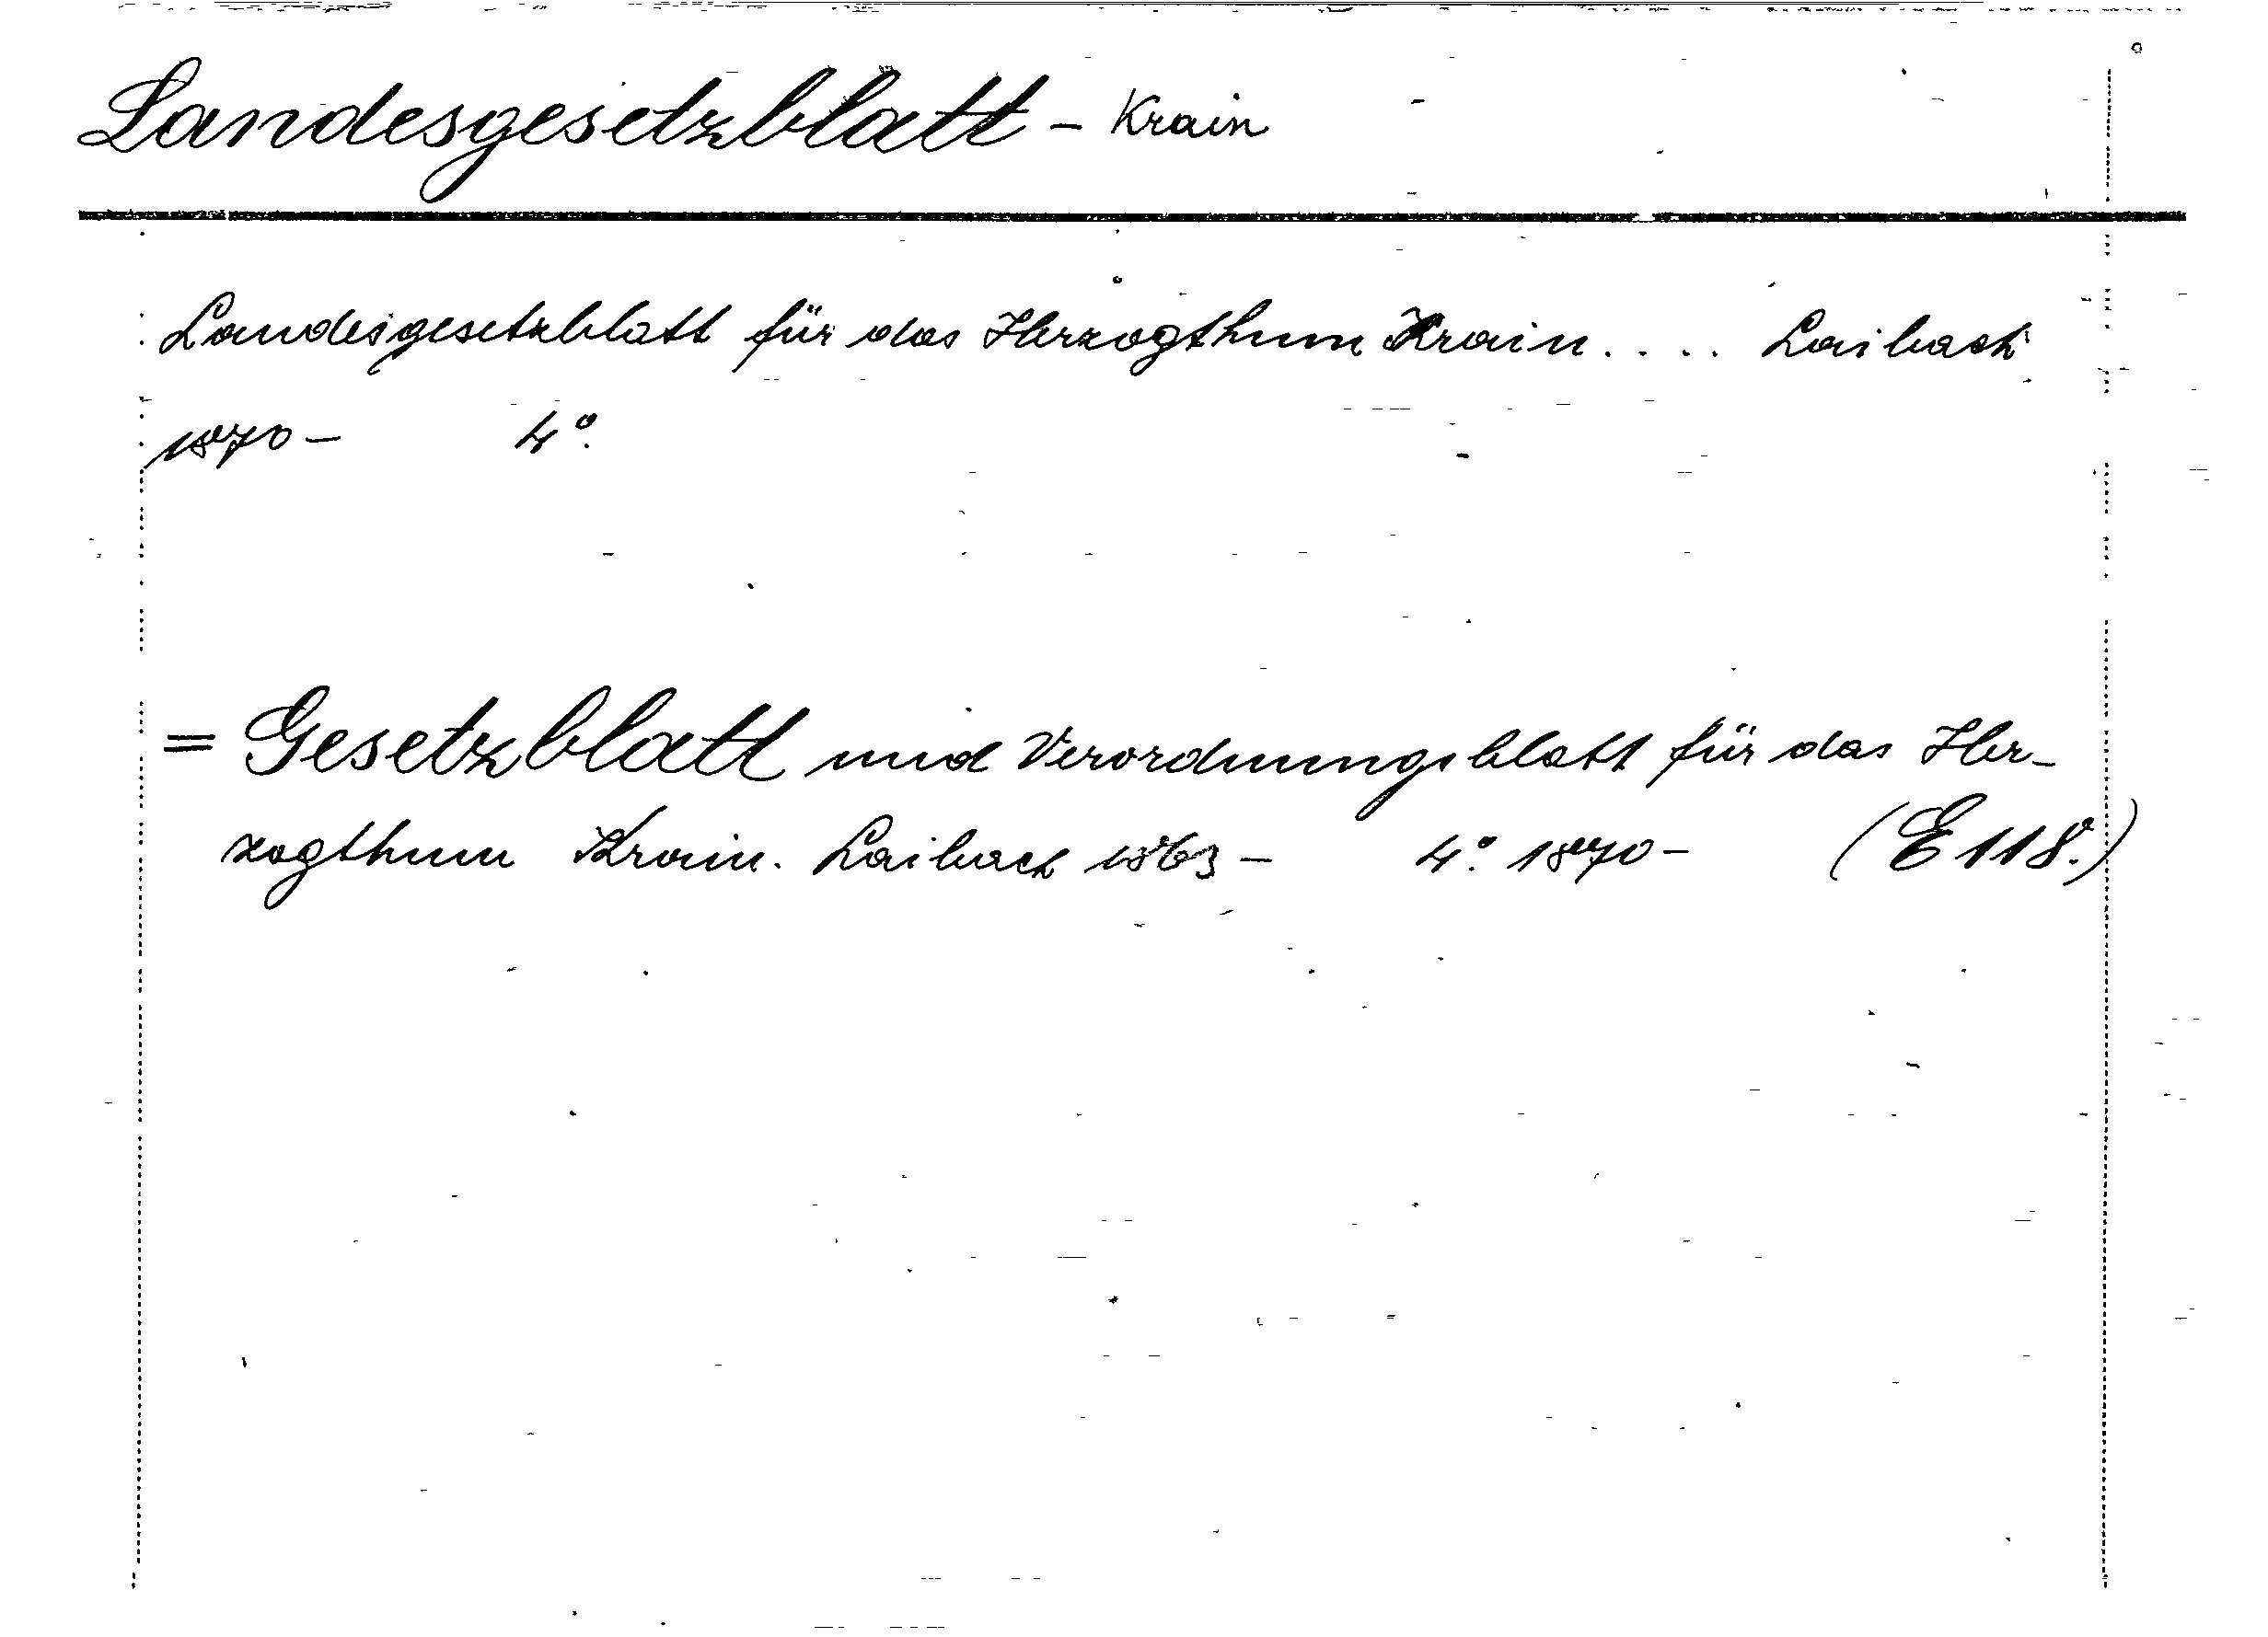 Landesgesetzblatt - Krain
Landesgesetzblatt für das Herzogthum Krain. . . . Laibach
1870 - 4°.
= Gesetzblatt und Verordnungsblatt für das Her-
zogthum Krain. Laibach 1863 - 4°. 1870 - (E 118.)